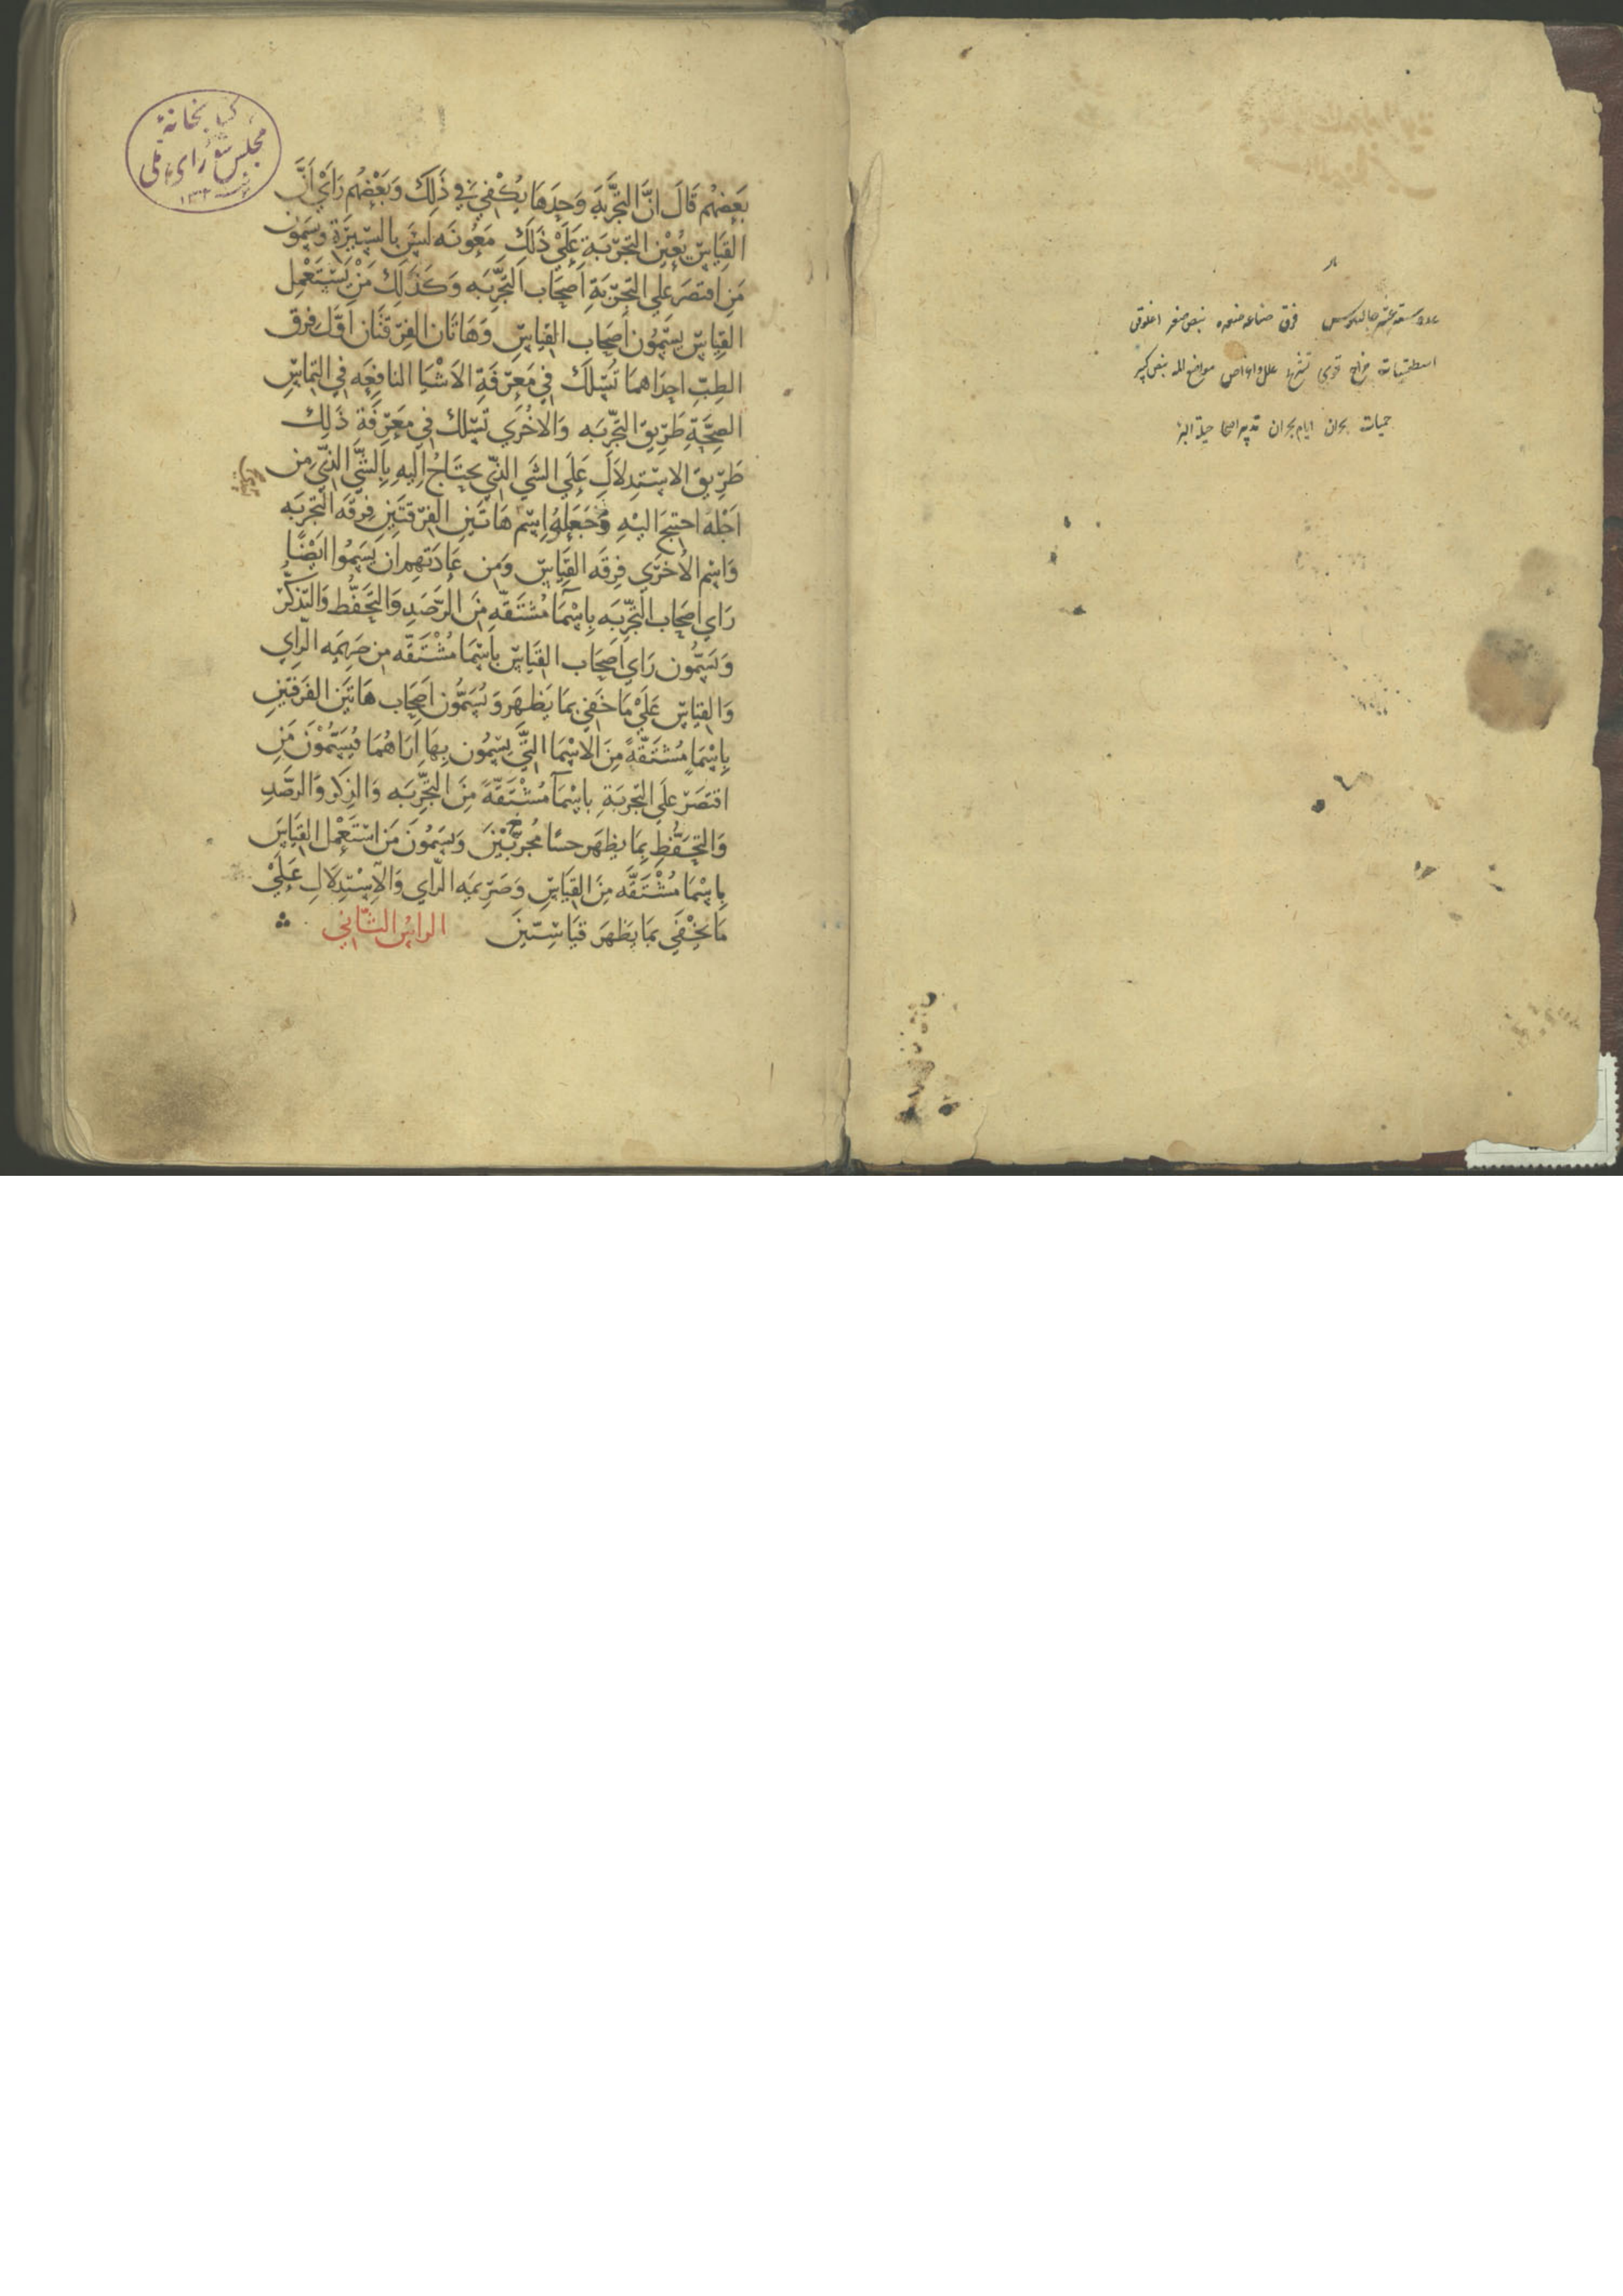 عدد ستة عشر جالينوس فرق صناعه صغيره نبض صغير اغلوقن
اسطقسات مزاج قوى تشريح علل واعراض مواضع الم نبض كبير
حميات بحران ايام بحران تدبير الصحا حيلة البرء
كتابخانهٔ
مجلس شورای ملی
بَعضُهُم قَالَ انَّ التجَّرِبَهَ وَحدَهَا يُكْفي في ذَلِكَ وَبَعْضُهُم رَايَ اَنَّ
القِيَاسَ يُعْين التجّربَةِ عَلَيْ ذَلِكَ مَعُونَه لَيسَ بالسِيرَةِ ويسَمّونَ
مَنِ اقتصَرَ عَلي التجّرَبَةِ اَصحَاب التجَّرِبَه وَكَذَلِكَ مَنْ يَسْتَعْمِل
القِيَاسَ يسَمُّون أصحَاب القياسِ وَهَاتَان الفِرقتَان اوّل فِرَق
الطبّ احداهما تَسْلك في مَعرِفَةِ الاَشْيَا النافِعَه في التمَاسِ
الصِحَّةِ طَرِيق التجَّرِبَه وَالاخُرَي تَسْلك في مَعرِفَة ذَلِك
طَرِيقَ الاسْتِدلَالِ عَلَي الشَي الذّي يحتَاجُ اِليهِ بِالشَّي الذّي مِن
اَجْله احتِيجَ اليْهِ وُجعَلوُا اِسْم هَاتَينِ الفِرقتَينِ فِرقَه التجربَه
وَاسْم الاُخرَي فِرقَه القِيَاسِ وَمِن عَادَتهم ان يسَموُا ايَضْاً
رَاي اَصحَاب التجَّرِبَه بِاسْمآ مُشتَقّهٍ مِنَ الرّصَدِ وَالتحَفّظ وَالتّذكُّرِ
وَيسَمُّون رَاي اَصحَاب القيَاسِ بِاسْمَا مُشْتَقّه مِن صَرِيمَه الرّاي
وَالقيَاسِ عَلَيْ مَا خَفي بمَا يَظهَر وَيُسَمُّون اَصحَاب هَاتَين الفرقتينِ
بِاسْمَاٍ مُشتَقّةً مِنَ الاسْمَا التّي يسّمُون بِهَا اراهُمَا فيُسَمُّوْنَ مَنِ
اقتَصَرَ عَلَي التجّربَةِ باسْمَآ مُشْتَقّةً مِنَ التجَّرِبَه وَالذِكر وَالرصَّدِ
وَالتحَفُّظِ بِمَا يظهَر حسًا مجُربّينَ وَيسَمُّونَ مَن اسْتَعْمل القِيَاسَ
بِاسْمَا مُشْتَقّه مِنَ القِيَاسِ وَصَرِيمَه الرّاي وَالاِسْتِدلَالِ عَلَيْ
مَا يخْفَي بمَا يَظهَرَ قيَاسِيّينَ الراسُ الثّاني